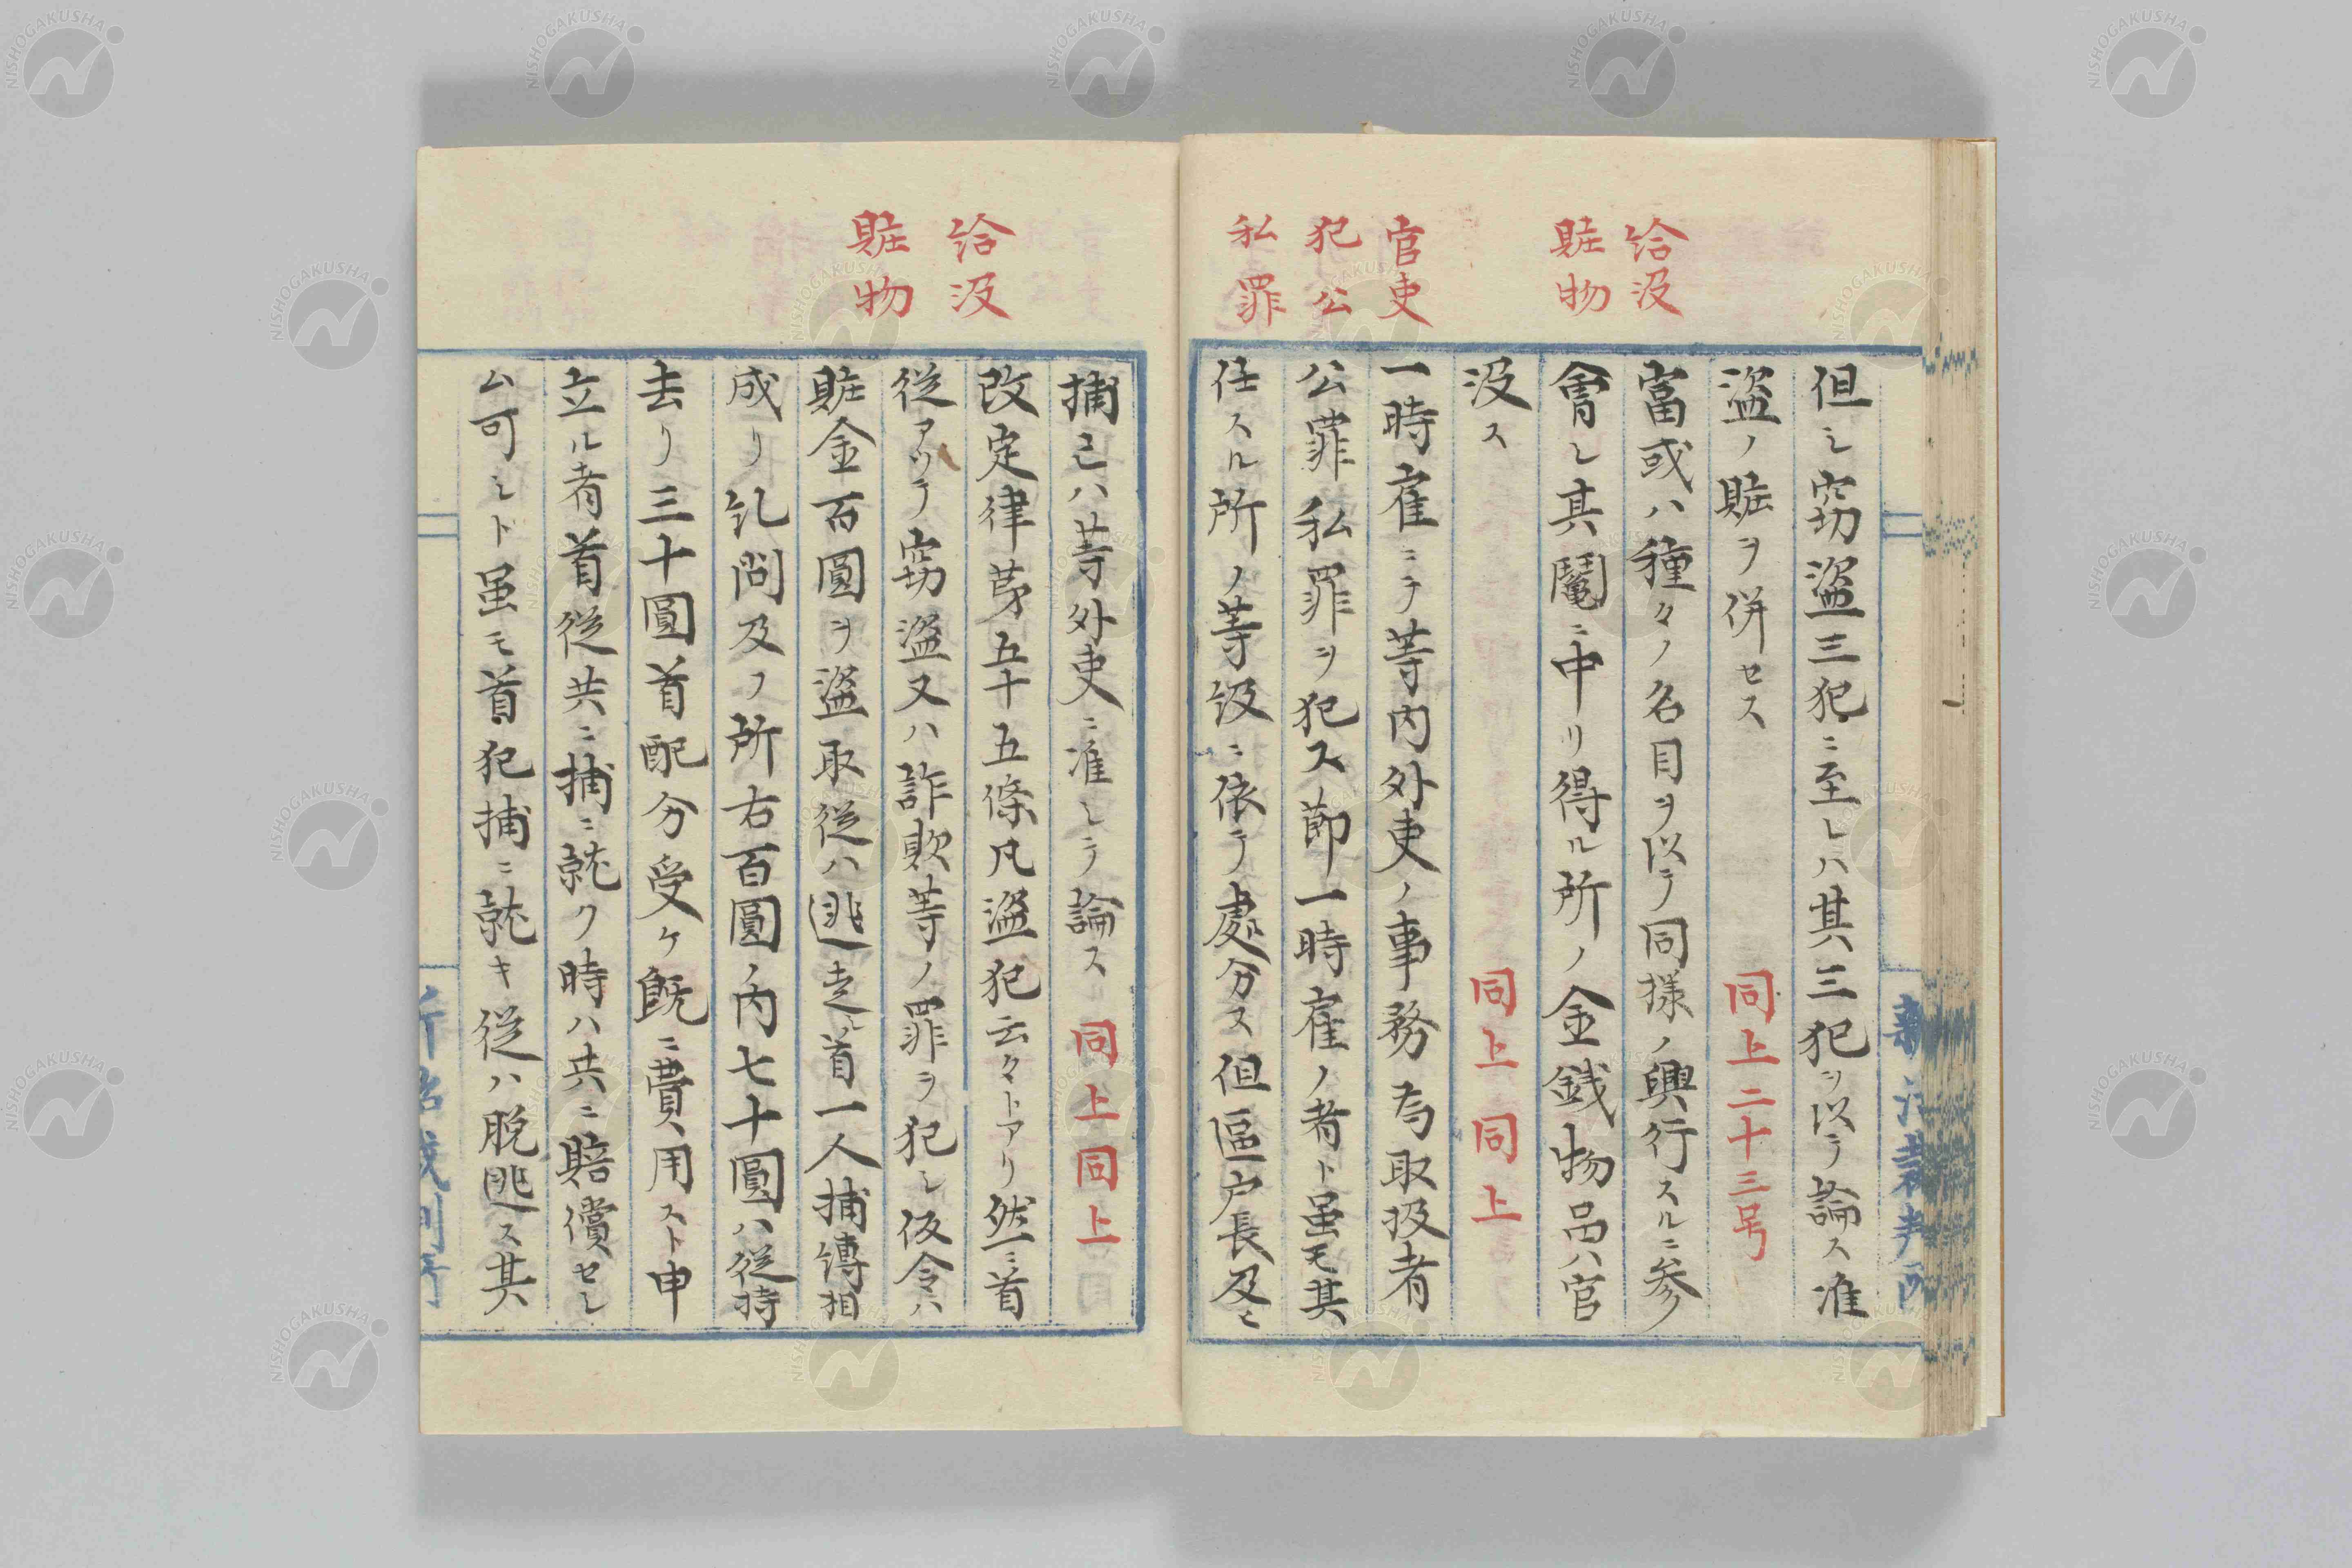 給没
贓物
官吏
犯公
私罪
但シ窃盗三犯ニ至レハ其三犯ヲ以テ論ス准
盗ノ贓ヲ併セス 同上二十三号
富或ハ種々ノ名目ヲ以テ同様ノ興行スルニ参
會シ其鬮ニ中リ得ル所ノ金銭物品ハ官
没ス 同上同上
一時雇ニテ等内外吏ノ事務為取扱者
公罪私罪ヲ犯ス節一時雇ノ者ト虽モ其
任スル所ノ等級ニ依テ處分ス但區戸長及ヒ
新潟裁判所
給没
贓物
捕亡ハ等外吏ニ准シテ論ス 同上同上
改定律第五十五條凡盗犯云々トアリ然ニ首
従アツテ窃盗又ハ詐欺等ノ罪ヲ犯シ仮令ハ
贓金百圓ヲ盗取従ハ逃走シ首一人捕縛相
成リ糺問及フ所右百圓ノ内七十圓ハ従持
去リ三十圓首配分受ケ既ニ費用スト申
立ル者首従共ニ捕ニ就ク時ハ共ニ賠償セシ
ム可シト虽モ首犯捕ニ就キ従ハ脱逃ス其
NISHOGAKUSHA